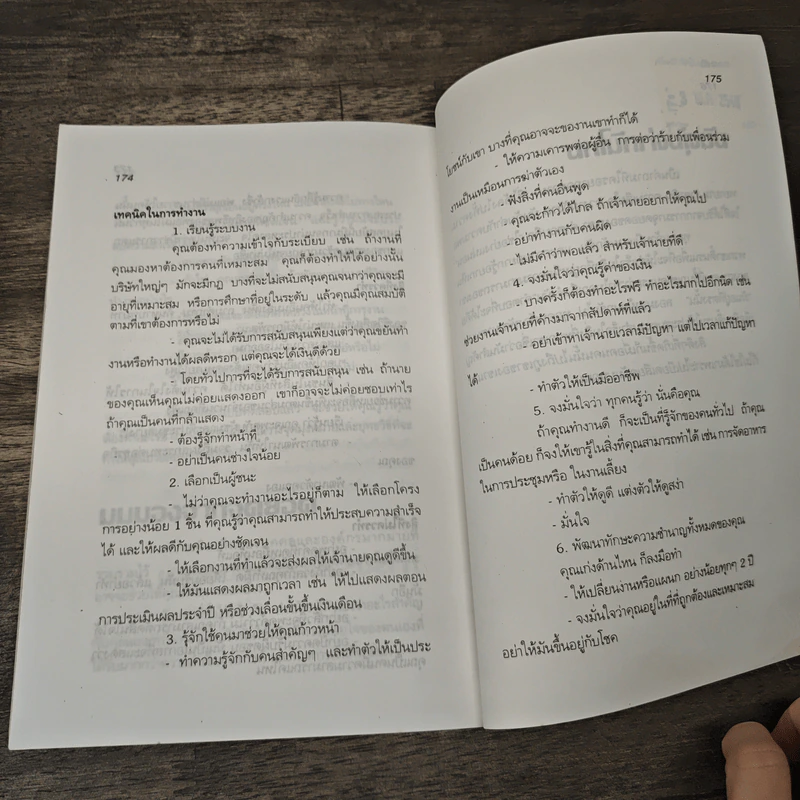 174
เทคนิคในการทำงาน
1. เรียนรู้ระบบงาน
คุณต้องทำความเข้าใจกับระเบียบ เช่น ถ้างานที่
คุณมองหาต้องการคนที่เหมาะสม คุณก็ต้องทำให้ได้อย่างนั้น
บริษัทใหญ่ๆ มักจะมีกฎ บางทีจะไม่สนับสนุนคุณจนกว่าคุณจะมี
อายุที่เหมาะสม หรือการศึกษาที่อยู่ในระดับ แล้วคุณมีคุณสมบัติ
ตามที่เขาต้องการหรือไม่
- คุณจะไม่ได้รับการสนับสนุนเพียงแต่ว่าคุณขยันทำ
งานหรือทำงานได้ผลดีหรอก แต่คุณจะได้เงินดีด้วย
- โดยทั่วไปการที่จะได้รับการสนับสนุน เช่น ถ้านาย
ของคุณเห็นคุณไม่ค่อยแสดงออก เขาก็อาจจะไม่ค่อยชอบเท่าไร
ถ้าคุณเป็นคนที่กล้าแสดง
- ต้องรู้จักทำหน้าที่
- อย่าเป็นคนช่างใจน้อย
2. เลือกเป็นผู้ชนะ
- ไม่ว่าคุณจะทำงานอะไรอยู่ก็ตาม ให้เลือกโครง
การอย่างน้อย 1 ชิ้น ที่คุณรู้ว่าคุณสามารถทำให้ประสบความสำเร็จ
ได้ และให้ผลดีกับคุณอย่างชัดเจน
- ให้เลือกงานที่ทำแล้วจะส่งผลให้เจ้านายคุณดูดีขึ้น
- ให้มันแสดงผลมาถูกเวลา เช่น ให้ไปแสดงผลตอน
การประเมินผลประจำปี หรือช่วงเลื่อนขั้นขึ้นเงินเดือน
3. รู้จักใช้คนมาช่วยให้คุณก้าวหน้า
- ทำความรู้จักกับคนสำคัญๆ และทำตัวให้เป็นประ
175
โยชน์กับเขา บางทีคุณอาจจะของานเขาทำก็ได้
- ให้ความเคารพต่อผู้อื่น การต่อว่าร้ายกับเพื่อนร่วม
งานเป็นเหมือนการฆ่าตัวเอง
- ฟังสิ่งที่คนอื่นพูด
- คุณจะก้าวได้ไกล ถ้าเจ้านายอยากให้คุณไป
- อย่าทำงานกับคนผิด
- ไม่มีคำว่าพอแล้ว สำหรับเจ้านายที่ดี
4. จงมั่นใจว่าคุณรู้ค่าของเงิน
- บางครั้งก็ต้องทำอะไรฟรี ทำอะไรมากไปอีกนิด เช่น
ช่วยงานเจ้านายที่ค้างมาจากสัปดาห์ที่แล้ว
- อย่าเข้าหาเจ้านายเวลามีปัญหา แต่ไปเวลาแก้ปัญหา
ได้
- ทำตัวให้เป็นมืออาชีพ
5. จงมั่นใจว่า ทุกคนรู้ว่า นั่นคือคุณ
ถ้าคุณทำงานดี ก็จะเป็นที่รู้จักของคนทั่วไป ถ้าคุณ
เป็นคนด้อย ก็จงให้เขารู้ในสิ่งที่คุณสามารถทำได้ เช่น การจัดอาหาร
ในการประชุมหรือ ในงานเลี้ยง
- ทำตัวให้ดูดี แต่งตัวให้ดูสง่า
- มั่นใจ
6. พัฒนาทักษะความชำนาญทั้งหมดของคุณ
คุณเก่งด้านไหน ก็ลงมือทำ
- ให้เปลี่ยนงานหรือแผนก อย่างน้อยทุกๆ 2 ปี
- จงมั่นใจว่าคุณอยู่ในที่ที่ถูกต้องและเหมาะสม
อย่าให้มันขึ้นอยู่กับโชค